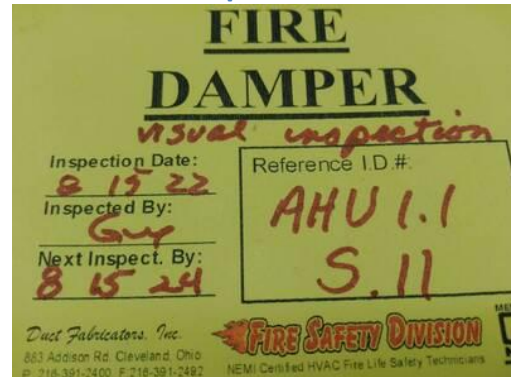 FIRE
DAMPER
visual inspection
Inspection Date:
8 15 22
Inspected By:
Guy
Next Inspect. By:
8 15 24
Reference I.D.#:
AHU 1.1
S.11
Duct Fabricators, Inc.
883 Addison Rd. Cleveland, Ohio
P. 216-391-2400 F 216-391-2492
FIRE SAFETY DIVISION
NEMI Certified HVAC Fire Life Safety Technicians